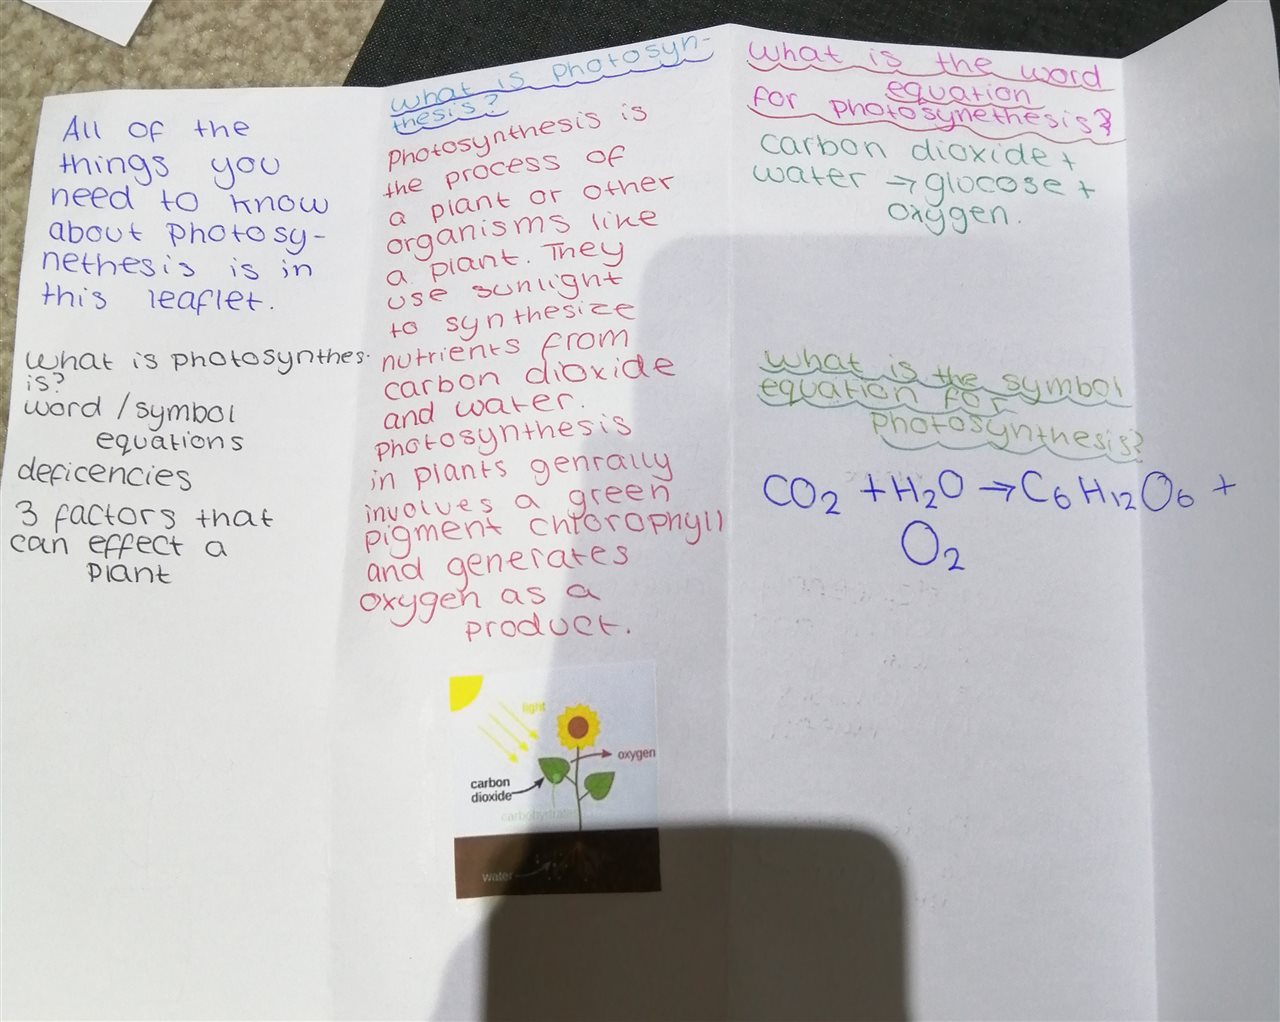 All of the
things you
need to know
about photosy-
nethesis is in
this leaflet.
what is photosynthes-
is?
word / symbol
equations
deficencies
3 factors that
can effect a
plant
what is photosyn-
thesis?
photosynthesis is
the process of
a plant or other
organisms like
a plant. They
use sunlight
to synthesize
nutrients from
carbon dioxide
and water.
photosynthesis
in plants genrally
involves a green
pigment chlorophyll
and generates
oxygen as a
product.
light
oxygen
carbon
dioxide
carbohydrate
water
what is the word
equation
for photosynethesis?
carbon dioxide +
water → glucose +
oxygen.
what is the symbol
equation for
photosynthesis?
CO₂ + H₂O → C₆H₁₂O₆ +
O₂